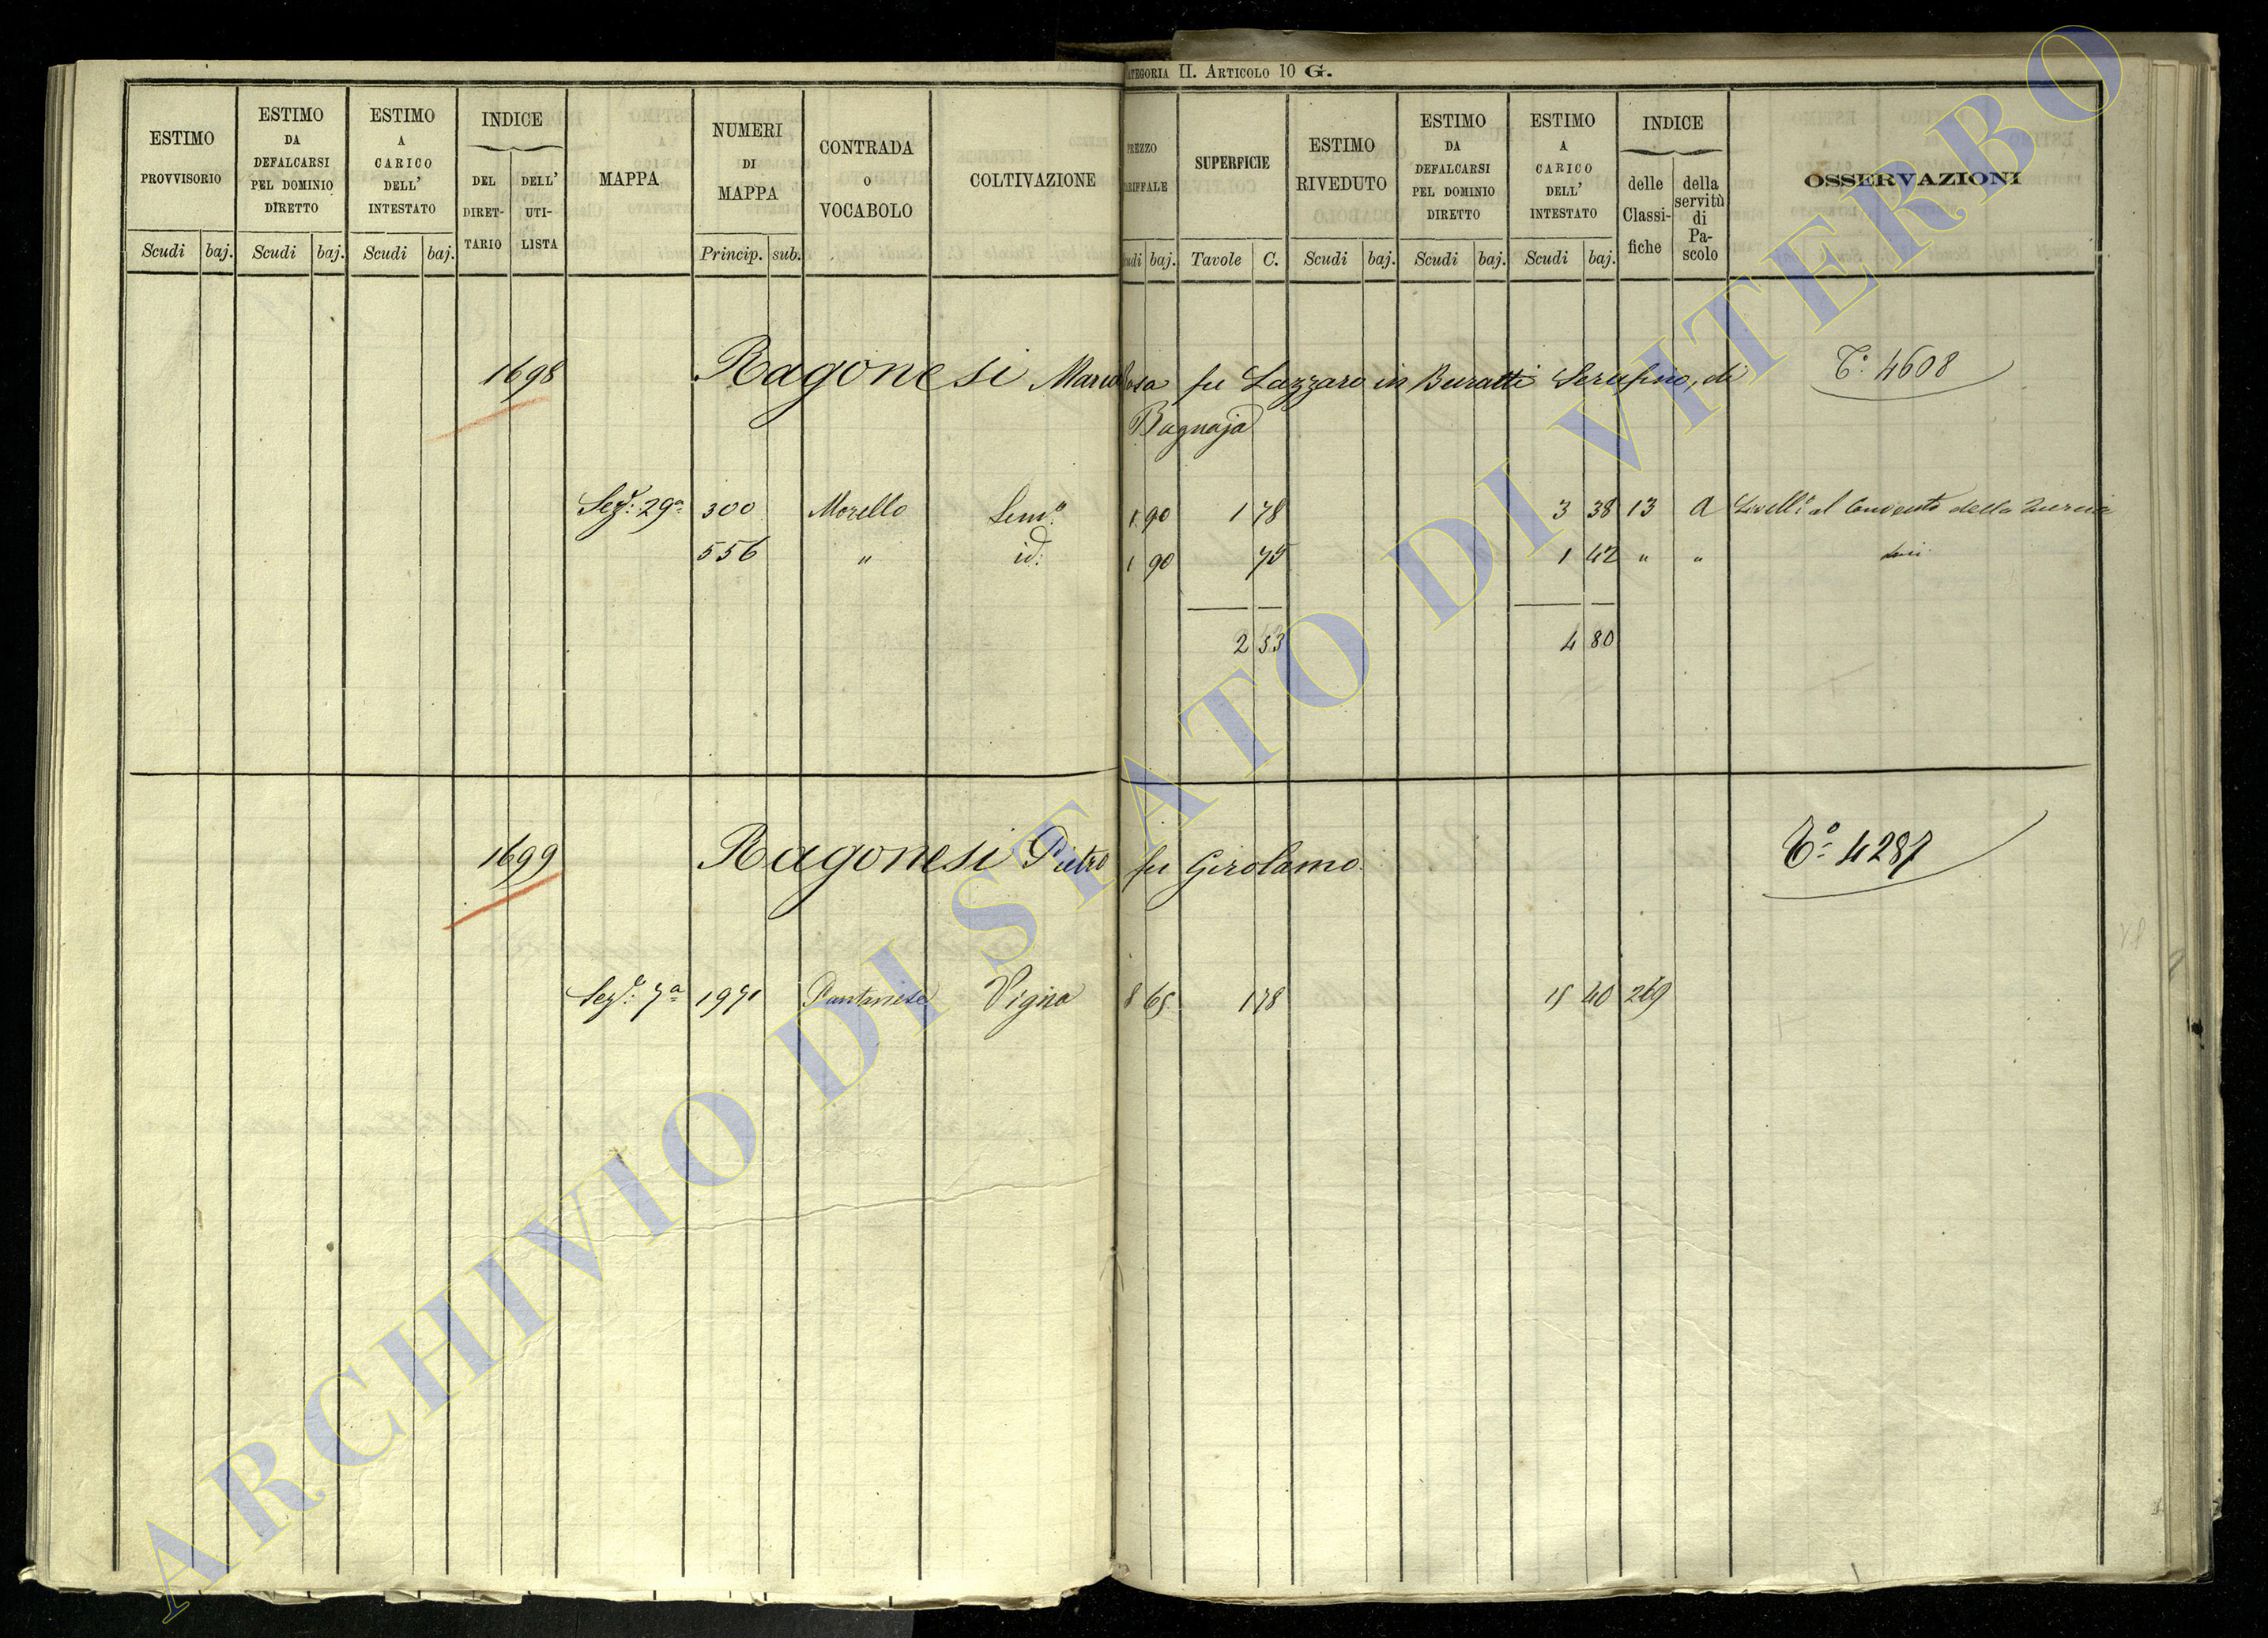 CATEGORIA II. ARTICOLO 10 G.
ESTIMO PROVVISORIO
Scudi baj.
ESTIMO DA DEFALCARSI PEL DOMINIO DIRETTO
Scudi baj.
ESTIMO A CARICO DELL' INTESTATO
Scudi baj.
INDICE
DEL DIRET-TARIO
DELL' UTI-LISTA
MAPPA
NUMERI DI MAPPA
Princip. sub.
CONTRADA o VOCABOLO
COLTIVAZIONE
PREZZO TARIFFALE
Scudi baj.
SUPERFICIE
Tavole C.
ESTIMO RIVEDUTO
Scudi baj.
ESTIMO DA DEFALCARSI PEL DOMINIO DIRETTO
Scudi baj.
ESTIMO A CARICO DELL' INTESTATO
Scudi baj.
INDICE
delle Classi-fiche
della servitù di Pa-scolo
OSSERVAZIONI
1698 Ragonesi fu Lazzaro in Buratti Serafino, di T.o 4608
Bagnaja
Sez.e 29a 300 Morello Sem.o 1 90 1 78 3 38 13 A Livell.o al Convento della Quercia
556 " id: 1 90 75 1 42 " "
2 53 4 80
1699 Ragonesi Pietro fu Girolamo T.o 4287
Sez.e 7a 1971 Pantanese Vigna 8 65 1 78 15 40 269
ARCHIVIO DI STATO DI VITERBO